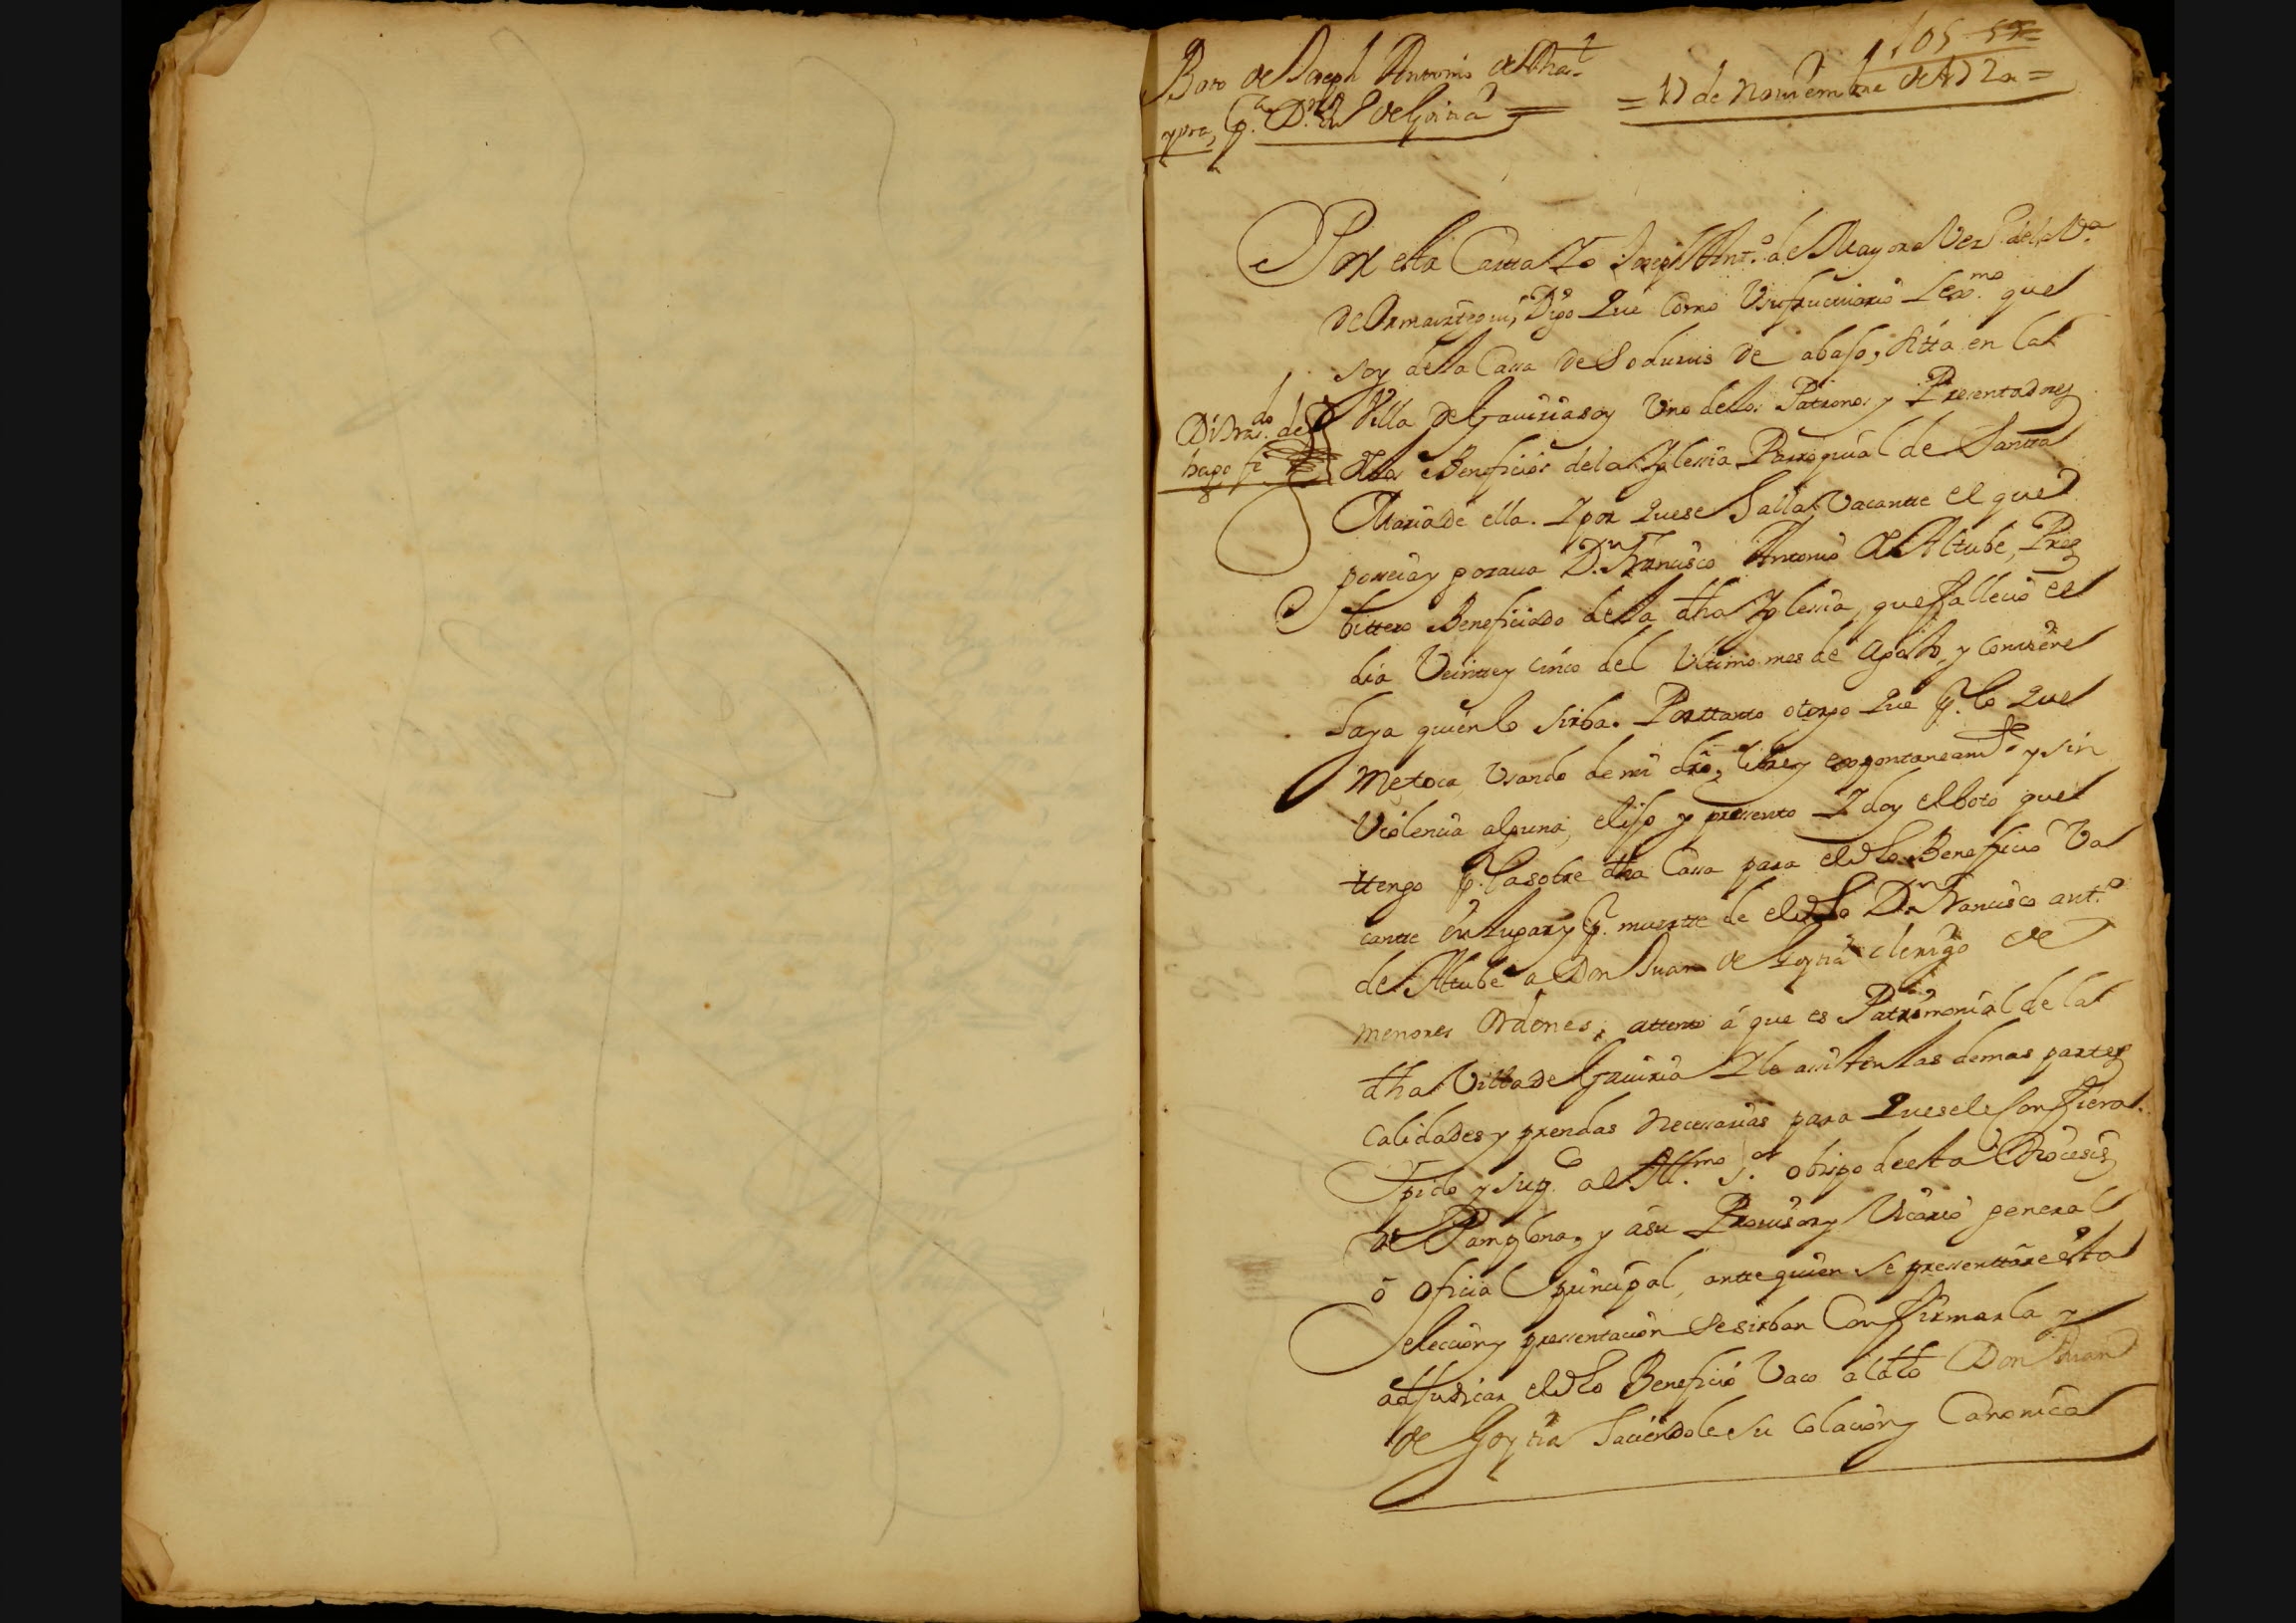 105
Boto de Joseph Antonio de
para Dn Ju de Goitia =
= 17 de Nouiembre de 172
Por esta Carta Yo Joseph Antº. de Mayora Vezº. dela Vª.
de Ormaiztegui, Digo Que Como Vsufructuario lexmo. que
soy de la Cassa de Soduruis de abajo, sitta en la
Villa de Gauiria soy Vno de los Patronos y Presentadores
de los Beneficios dela Yglessia Parroquial de Santta
Maria de ella. Y por Quese halla Vacantte el que
posseia y gozaua Dn. Francisco Antonio de Altube, Pres
bittero Beneficiado de la dha Yglessia, que ffallecio el
dia Veintte y cinco del Vltimo mes de Agosto, y conuiene
haya quien lo sirba. Porttanto otorgo Que p. lo Que
Me toca, Vsando de mi dro, libre y expontaneamte. y sin
Violencia alguna, elijo y pressento Y doy el boto que
ttengo p. la sobre dha Cassa para el dho Beneficio Va
cantte en lugar y p. muertte de el dho Dn. Francisco antº.
de Altube a Don Juan de Goytia clerigo de
menores Ordenes, attento á que es Patrimonial de la
dha Villa de Gauiria Y le assisten las demas partes
Calidades y prendas Necessarias para Quesele Conffiera.
Y pido y supco al Yllmo. Sor. obispo de esta Diocesis
de Pamplona, y asu Prouisor y Vicario general
ó oficial principal, antte quien se pressenttare esta
eleccion y pressentacion se sirban Conffirmarla y
adjudicar el dho Beneficio Vaco al dho Don Juan
de Goytia haciendole su colacion y Canonica
Di trasdo. de
hago fe